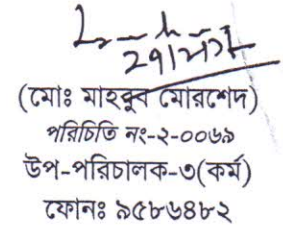 (মোঃ মাহবুব মোরশেদ)
পরিচিতি নং-২-০০৬৯
উপ-পরিচালক-৩(কর্ম)
ফোনঃ ৯৫৮৬৪৮২